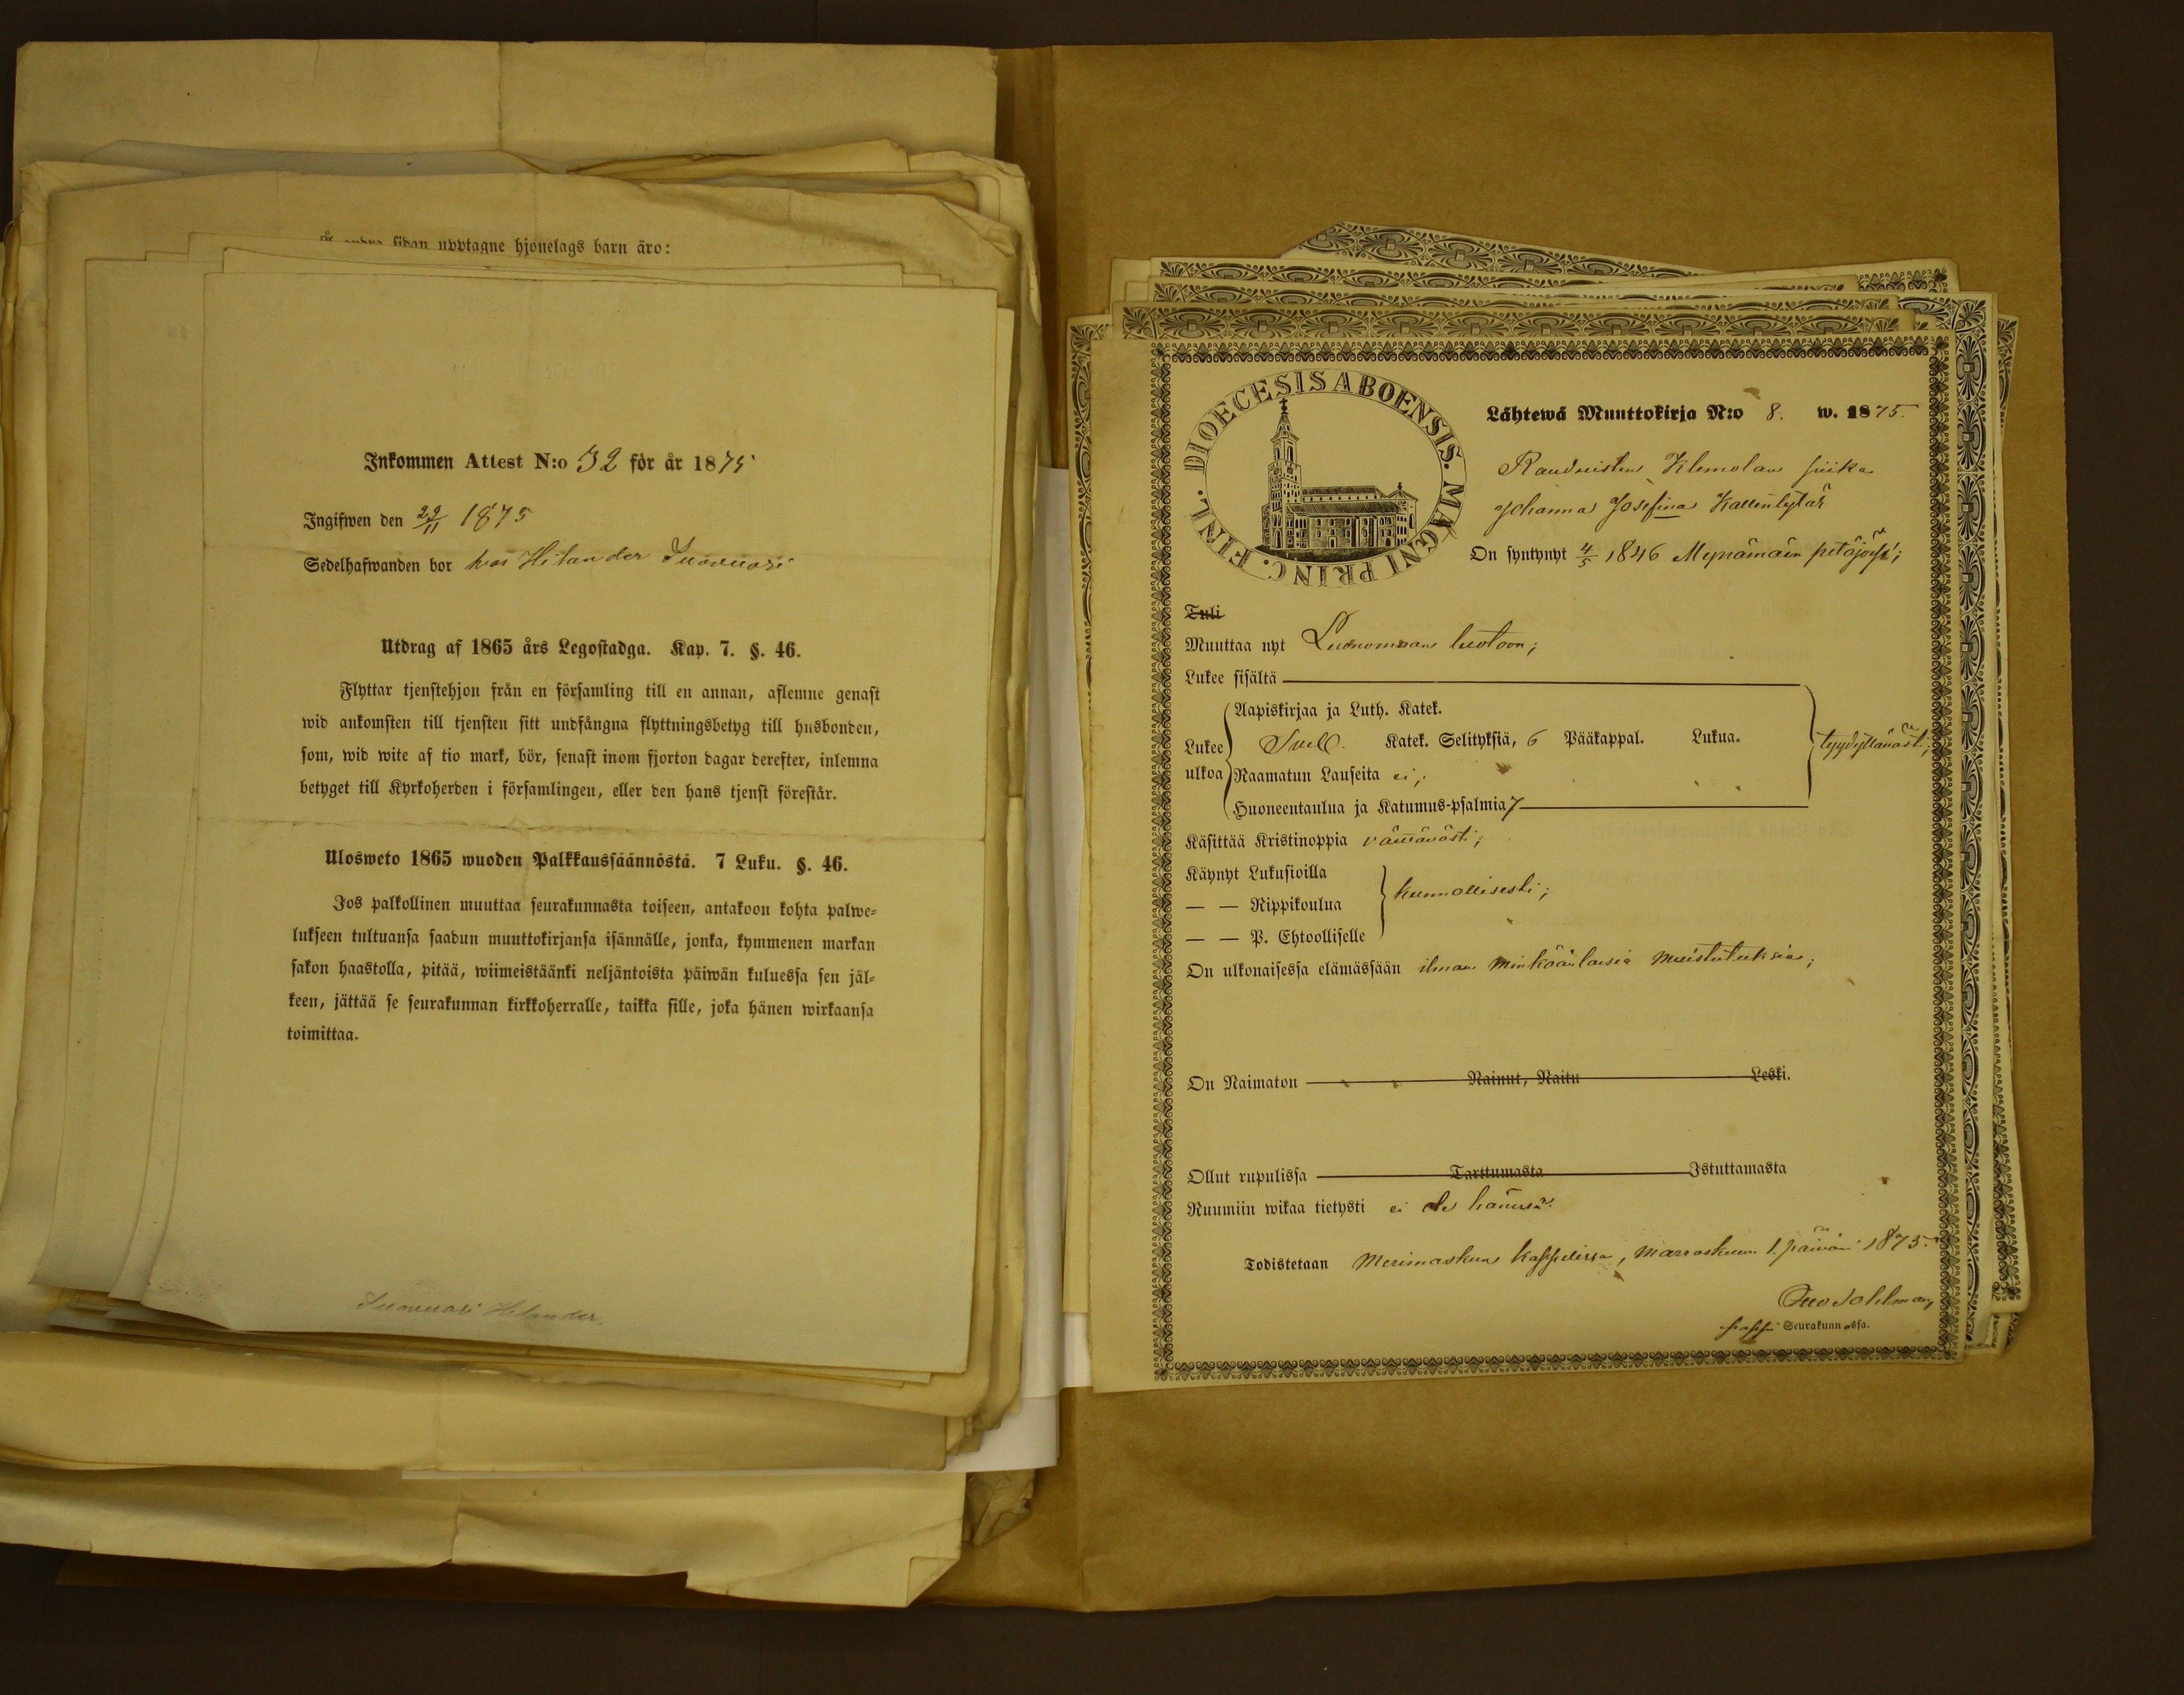 sidan upptagne hjonelags barn äro:
Inkommen Attest N:o 32 för år 1875
Ingifwen den 29/11 1875
Sedelhafwanden bor hos Hilander
Utdrag af 1865 års Legostadga. Kap. 7. §. 46.
Flyttar tjenstehjon från en församling till en annan, aflemne genast
wid ankomsten till tjensten sitt undfångna flyttningsbetyg till husbonden,
som, wid wite af tio mark, bör, senast inom fjorton dagar derefter, inlemna
betyget till Kyrkoherden i församlingen, eller den hans tjenst förestår.
Ulosweto 1865 wuoden Palkkaussäännöstä. 7 Luku. §. 46.
Jos palkollinen muuttaa seurakunnasta toiseen, antakoon kohta palwe-
lukseen tultuansa saadun muuttokirjansa isännälle, jonka, kymmenen markan
sakon haastolla, pitää, wiimeistäänki neljäntoista päiwän kuluessa sen jäl-
keen, jättää se seurakunnan kirkkoherralle, taikka sille, joka hänen wirkaansa
toimittaa.
Hilander.
DIOECESIS ABOENSIS. MAGNI PRINC. FINL.
Lähtewä Muuttokirja N:o 8. w. 1875.
Klemolan piika
Johanna Josefina Kallentytär
On syntynyt 4/5 1846 Mynämäen pitäjäsä;
Tuli
Muuttaa nyt Luonnonmaan luotoon;
Lukee sisältä
Aapiskirjaa ja Luth. Katek.
Lukee ulkoa Svell. Katek. Selityksiä, 6 Pääkappal. Lukua. tyydyttäväsä;
Raamatun Lauseita ei;
Huoneentaulua ja Katumus-psalmia 7
Käsittää Kristinoppia välttävästi;
Käynyt Lukusioilla
— — Rippikoulua kunnollisesti;
— — P. Ehtoolliselle
On ulkonaisessa elämässään ilman minkäänlaisia muistutuksia;
On Naimaton Nainut, Naitu Leski.
Ollut rupulissa Tarttumasta Istuttamasta
Ruumiin wikaa tietysti ei ole hänessä.
Todistetaan Merimaskun kappelissa, Marraskuun 1. päivänä 1875.
Seurakunnassa.